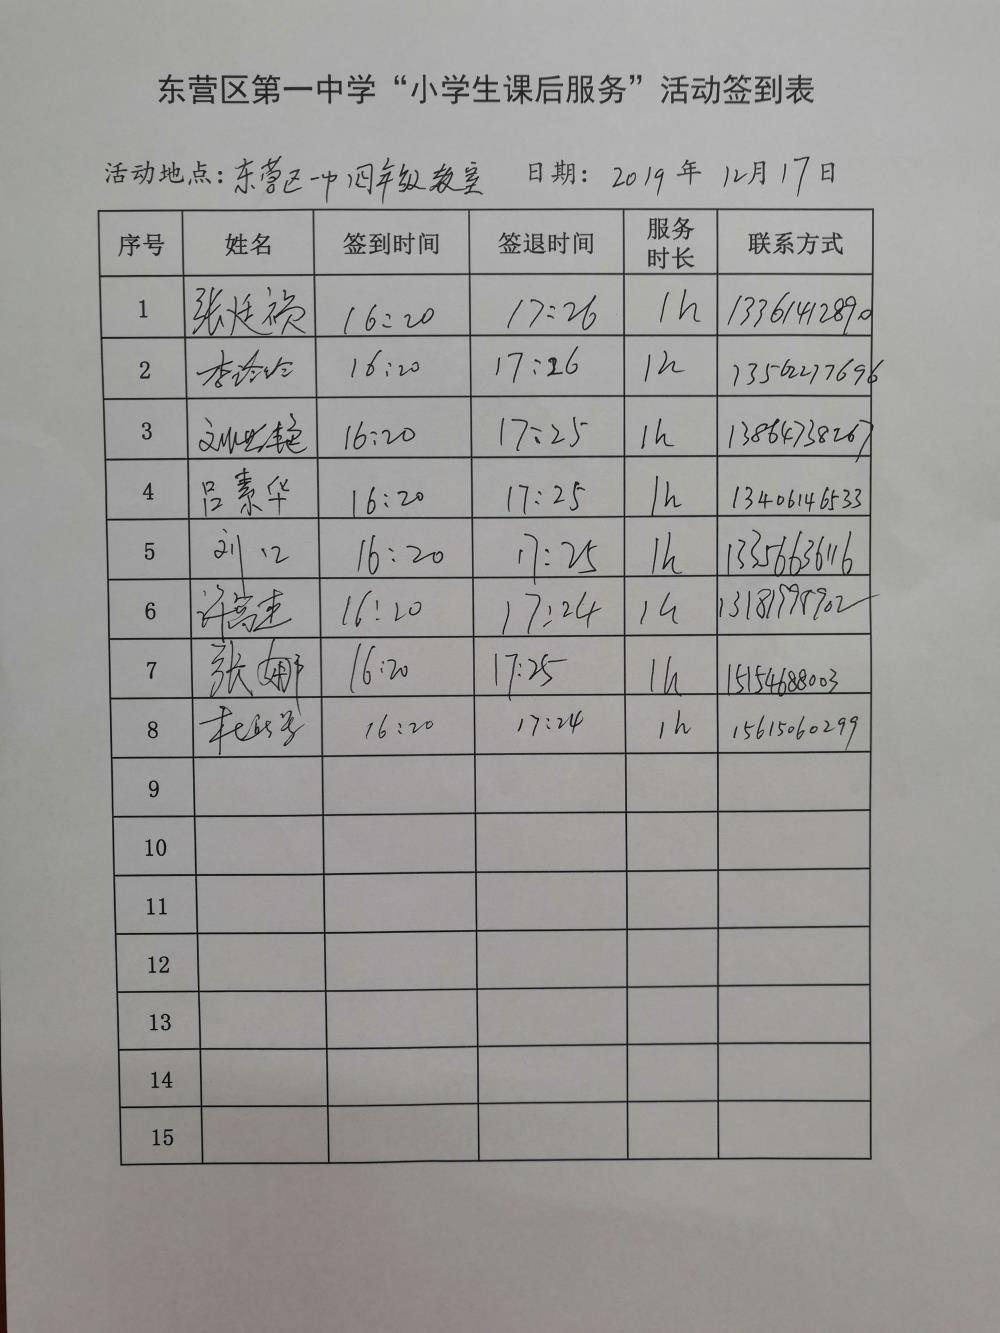 东营区第一中学“小学生课后服务”活动签到表
活动地点: 东营区一中四年级教室 日期: 2019 年 12月17日
序号 姓名 签到时间 签退时间 服务时长 联系方式
1 张廷祯 16:20 17:26 1h 13361412890
2 李玲玲 16:20 17:26 1h 13562277696
3 16:20 17:25 1h 13864738267
4 吕素华 16:20 17:25 1h 13406146533
5 刘江 16:20 17:25 1h 13356636116
6 许高杰 16:20 17:24 1h
7 张娜 16:20 17:25 1h 15154688003
8 16:20 17:24 1h 15615060299
9
10
11
12
13
14
15